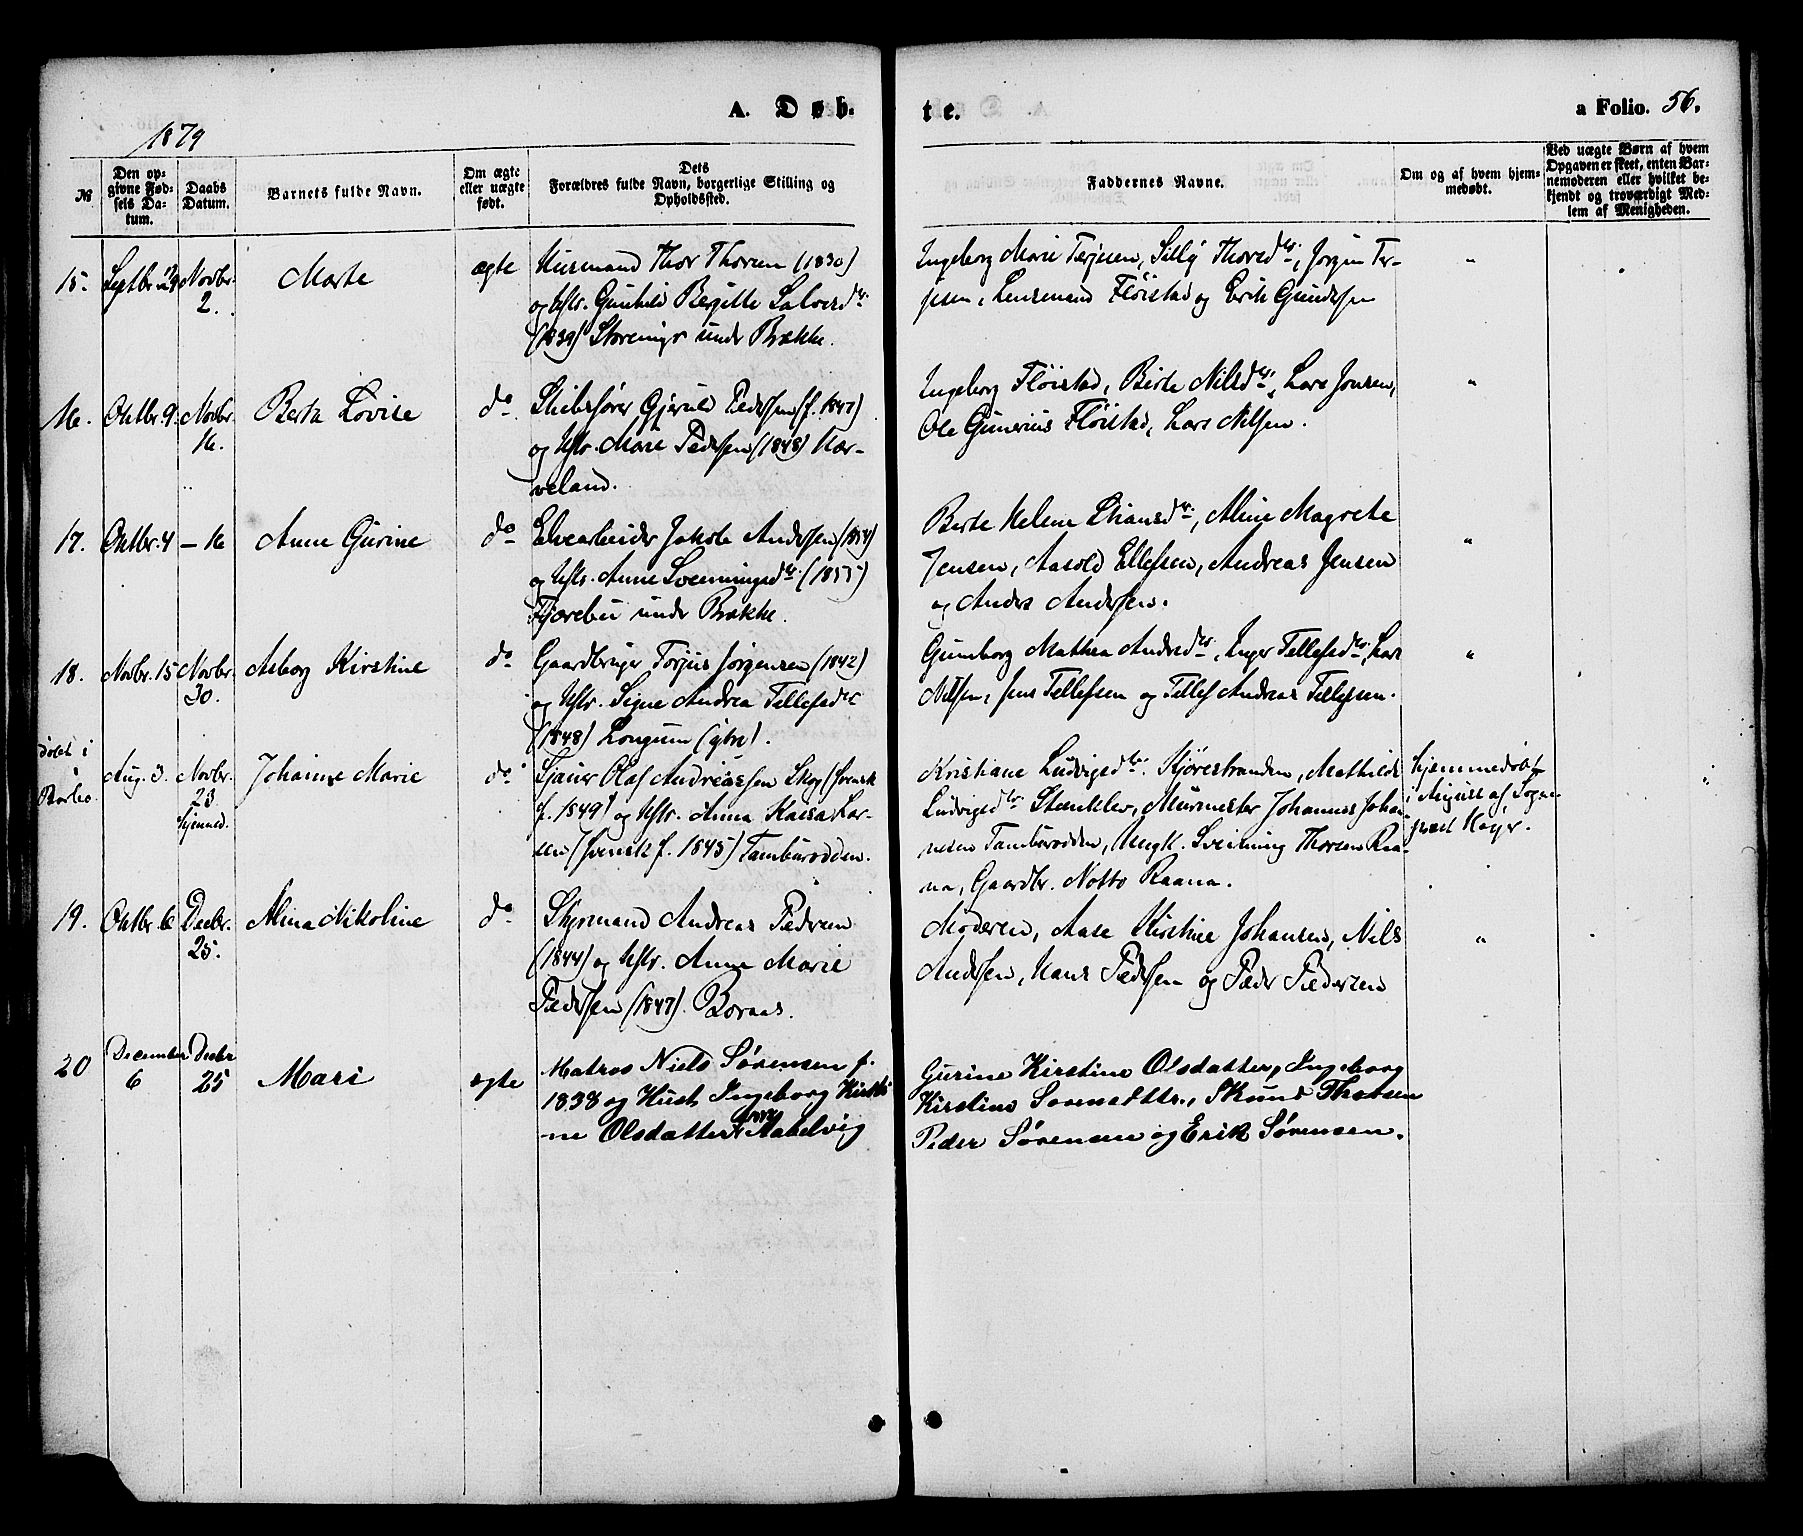 1879
A. Døb-
te.
a Folio. 56.
№
Den op-
givne Fød-
sels Da-
tum.
Daabs
Datum.
Barnets fulde Navn.
Om ægte
eller uægte
født.
Dets
Forældres fulde Navn, borgerlige Stilling og
Opholdssted.
Faddernes Navne.
Om og af hvem hjem-
medøbt.
Ved uægte Børn af hvem
Opgaven er skeet, enten Bar-
nemoderen eller hvilket be-
kjendt og troværdigt Med-
lem af Menigheden.
15.
Septbr. 29
Novbr.
2.
Marte
ægte
Husmand Thor Thorsen (1830)
og Hstr. Gunhild Birgitte Salvesdtr.
(1839) under Brække.
Ingeborg Marie Terjesen, Silly Thoresdtr., Jørgen Ter-
jesen, Lensmand Fløistad og Erik Gundersen
"
16.
Oktbr. 9.
Novbr.
16.
Berta Lovise
do
Skibsfører Gjeruld Pedersen (f. 1847)
og Hstr. Marie Pedersen (1848) Har-
veland.
Ingeborg Fløistad, Birte Nilsdtr., Lars Jensen,
Ole Gunerius Fløistad, Lars Nilsen.
"
17.
Oktbr. 4
— 16
Anne Gurine
do
Elvearbeider Jakob Andersen (1854)
og Hstr. Anne Svenningsdtr. (1855)
Fjærebu under Brække.
Berte Helene Eliansdtr., Aline Magrete
Jensen, Aasold Ellefsen, Andreas Jensen
og Anders Andersen.
"
18.
Novbr. 15
Novbr.
30.
Asborg Kirstine
do
Gaardbruger Torjus Jørgensen (1842)
og Hstr. Signe Andrea Tellefsdtr
(1848) Longum (gbr).
Gunborg Mathea Andersdtr., Inger Tellefsdtr., Lars
Nilsen, Jens Tellefsen og Tellef Andreas Tellefsen.
"
døbt i
Barbo.
Aug. 3.
Novbr.
23
hjemmed.
Johanne Marie
do
Sjauer Olaf Andreassen Skog (svensk
f. 1849) og Hstr. Anna Kaisa Lar-
sen (svensk f. 1845) Tambursodden.
Kristiane Ludvigsdtr. Kjørestranden, Mathilde
Ludvigsdtr Steenklev, Murmester Johannes Johan-
nesen Tambursodden, Ungk. Sveinung Thorsen Raa-
na, Gaardbr. Notto Raana.
Hjemmedøbt
i August af Sogne-
præst Høyer.
"
19.
Oktbr. 6
Decbr.
25.
Alma Nikoline
do
Styrmand Andreas Pedersen
(1844) og Hstr. Anne Marie
Pedersen (1847). Boraas.
Moderen, Aase Kirstine Johansen, Nils
Andersen, Hans Pedersen og Peder Pedersen
"
20
December
6
Decbr
25
Mari
ægte
Matros Niels Sørensen f.
1838 og Hust Ingeborg Kirsti-
ne Olsdatter Aabelvig
Gurine Kirstine Olsdatter, Ingeborg
Kirstine Sorensdttr., Knud Thorsen
Peder Sørensen og Erik Sørensen.